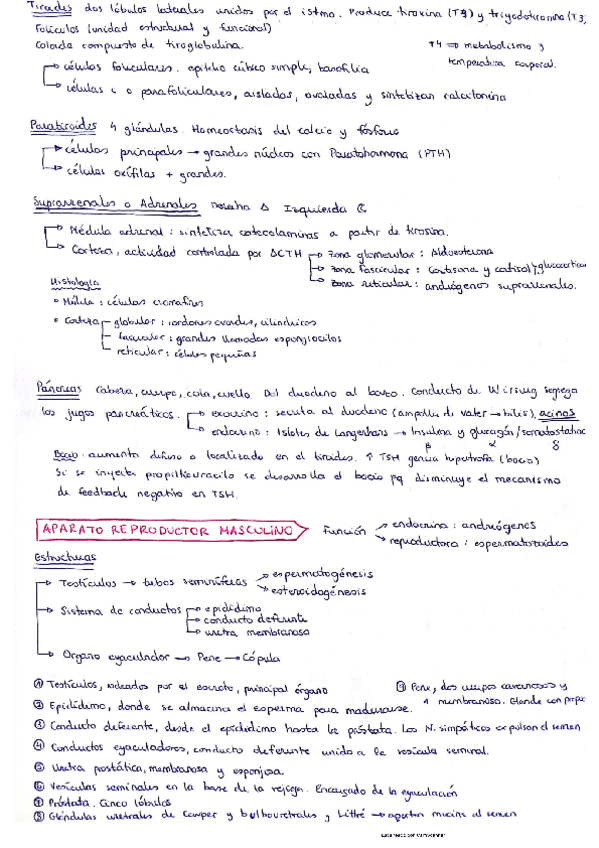 Tiroides dos lóbulos laterales unidos por el istmo. Produce tiroxina (T4) y triyodotironina (T3)
Folículos (unidad estructural y funcional)
Coloide compuesto de tiroglobulina.
T4 ⇒ metabolismo y
temperatura corporal.
→ células foliculares. epitelio cúbico simple, basofilia
→ células c o parafoliculares, aisladas, ovaladas y sintetizan calcitonina
Paratiroides 4 glándulas. Homeostasis del calcio y fósforo
→ células principales → grandes núcleos con Paratohormona (PTH)
→ células oxífilas + grandes.
Suprarrenales o Adrenales Derecha △ Izquierda ☾
→ Médula adrenal: sintetiza catecolaminas a partir de tirosina.
→ Corteza, actividad controlada por ACTH → Zona glomerular: Aldosterona
→ Zona fascicular: Cortisona y cortisol/glucocortico
→ Zona reticular: andrógenos suprarrenales.
Histología
• Médula: células cromafines
• Corteza globular: cordones ovoides, cilíndricos
fascicular: grandes llamados espongiocitos
reticular: células pequeñas
Páncreas Cabeza, cuerpo, cola, cuello. Del duodeno al bazo. Conducto de Wirsung segrega
los jugos pancreáticos. → exocrino: secreta al duodeno (ampolla de vater → bilis), acinos
→ endocrino: Islotes de Langerhans → Insulina y glucagón/somatostatina
β α δ
Bocio: aumento difuso o localizado en el tiroides. ↑ TSH genera hipertrofia (bocio)
Si se inyecta propiltiouracilo se desarrolla el bocio pq disminuye el mecanismo
de feedback negativo en TSH.
APARATO REPRODUCTOR MASCULINO Función → endocrina: andrógenos
→ reproductora: espermatozoides
Estructuras
→ Testículos → tubos seminíferos → espermatogénesis
→ esteroidogénesis
→ Sistema de conductos → epidídimo
→ conducto deferente
→ uretra membranosa
→ Organo eyaculador → Pene → Cópula
① Testículos, rodeados por el escroto, principal órgano
⑨ Pene, dos cuerpos cavernosos y
1 membranoso. Glande con prepu
② Epidídimo, donde se almacena el esperma para madurarse.
③ Conducto deferente, desde el epidídimo hasta la próstata. Los N. simpáticos expulsan el semen
④ Conductos eyaculadores, conducto deferente unido a la vesícula seminal.
⑤ Uretra prostática, membranosa y esponjosa.
⑥ Vesículas seminales en la base de la vejiga. Encargado de la eyaculación
⑦ Próstata. Cinco lóbulos
⑧ Glándulas uretrales de Cowper y bulbouretrales y Littré → aportan mucina al semen